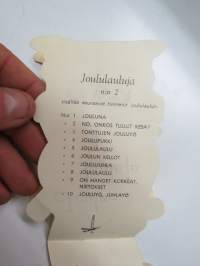 Joululauluja
n:o 2
sisältää seuraavat tunnetut joululaulut:
N:o 1 JOULUNA
» 2 NO, ONKOS TULLUT KESÄ?
» 3 TONTTUJEN JOULUYÖ
» 4 JOULUPUKKI
» 5 JOULULAULU
» 6 JOULUN KELLOT
» 7 JOULUJUHLA
» 8 JOULULAULU
» 9 ON HANGET KORKEAT,
NIETOKSET
» 10 JOULUYÖ, JUHLAYÖ